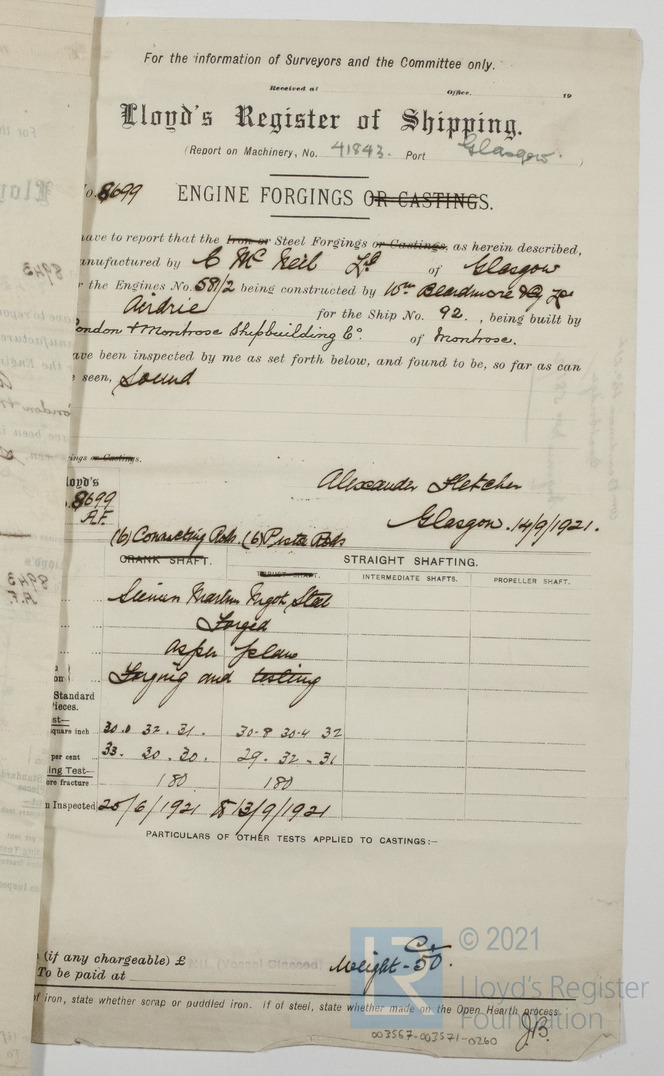 For the information of Surveyors and the Committee only.
Received at Office. 19
Lloyd's Register of Shipping.
(Report on Machinery, No. 41843. Port Glasgow.)
No. 8699 ENGINE FORGINGS OR CASTINGS.
have to report that the Iron or Steel Forgings or Castings, as herein described,
anufactured by C McNeil Ld of Glasgow
r the Engines No. 581/2 being constructed by Wm Beardmore & Co Ld
Airdrie for the Ship No. 92. , being built by
London & Montrose Shipbuilding Co. of Montrose.
ave been inspected by me as set forth below, and found to be, so far as can
e seen, Sound
ings or Castings.
loyd's
8699
A.F.
Alexander Fletcher
Glasgow. 14/9/1921.
(6) Connecting Rods. (6) Piston Rods
CRANK SHAFT. STRAIGHT SHAFTING.
THRUST SHAFT. INTERMEDIATE SHAFTS. PROPELLER SHAFT.
Siemen Martin Ingot Steel
Forged
As per plans
Forging and testing
Standard
ieces.
st—
square inch 30.0 32. 31. 30-8 30-4 32
per cent 33. 30. 30. 29. 32. 31
ing Test—
ore fracture 180 180
n Inspected 20/6/1921 13/9/1921
PARTICULARS OF OTHER TESTS APPLIED TO CASTINGS:—
(if any chargeable) £
To be paid at
Weight - 50.
of iron, state whether scrap or puddled iron. If of steel, state whether made on the Open Hearth process.
003567-003571-0260
© 2021
Lloyd's Register
Foundation